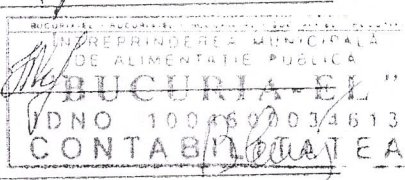 ÎNTREPRINDEREA MUNICIPALĂ
DE ALIMENTAȚIE PUBLICĂ
"BUCURIA-EL"
IDNO 1003600034613
CONTABILITATEA